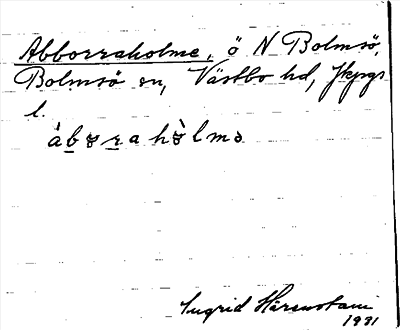 Abborraholme, ö N Bolmsö,
Bolmsö sn, Västbo hd, Jkpgs
l.
àbɞra hɞ̀lmə
Ingrid Härenstam
1931